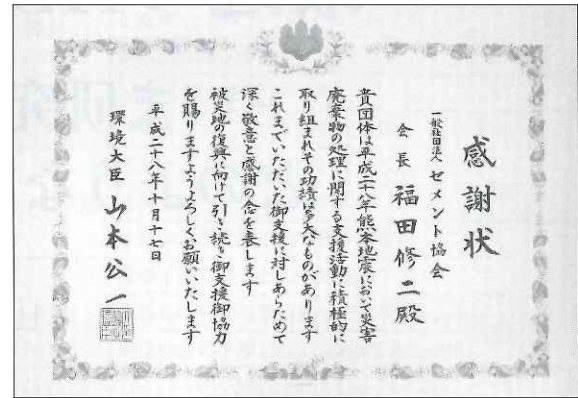 感謝状
一般社団法人 セメント協会
会長 福田修二殿
貴団体は平成二十八年熊本地震において災害
廃棄物の処理に関する支援活動に積極的に
取り組まれその功績は多大なものがあります
これまでいただいた御支援に対しあらためて
深く敬意と感謝の念を表します
被災地の復興に向けて引き続き御支援御協力
を賜りますようよろしくお願いいたします
平成二十八年十月十七日
環境大臣 山本公一